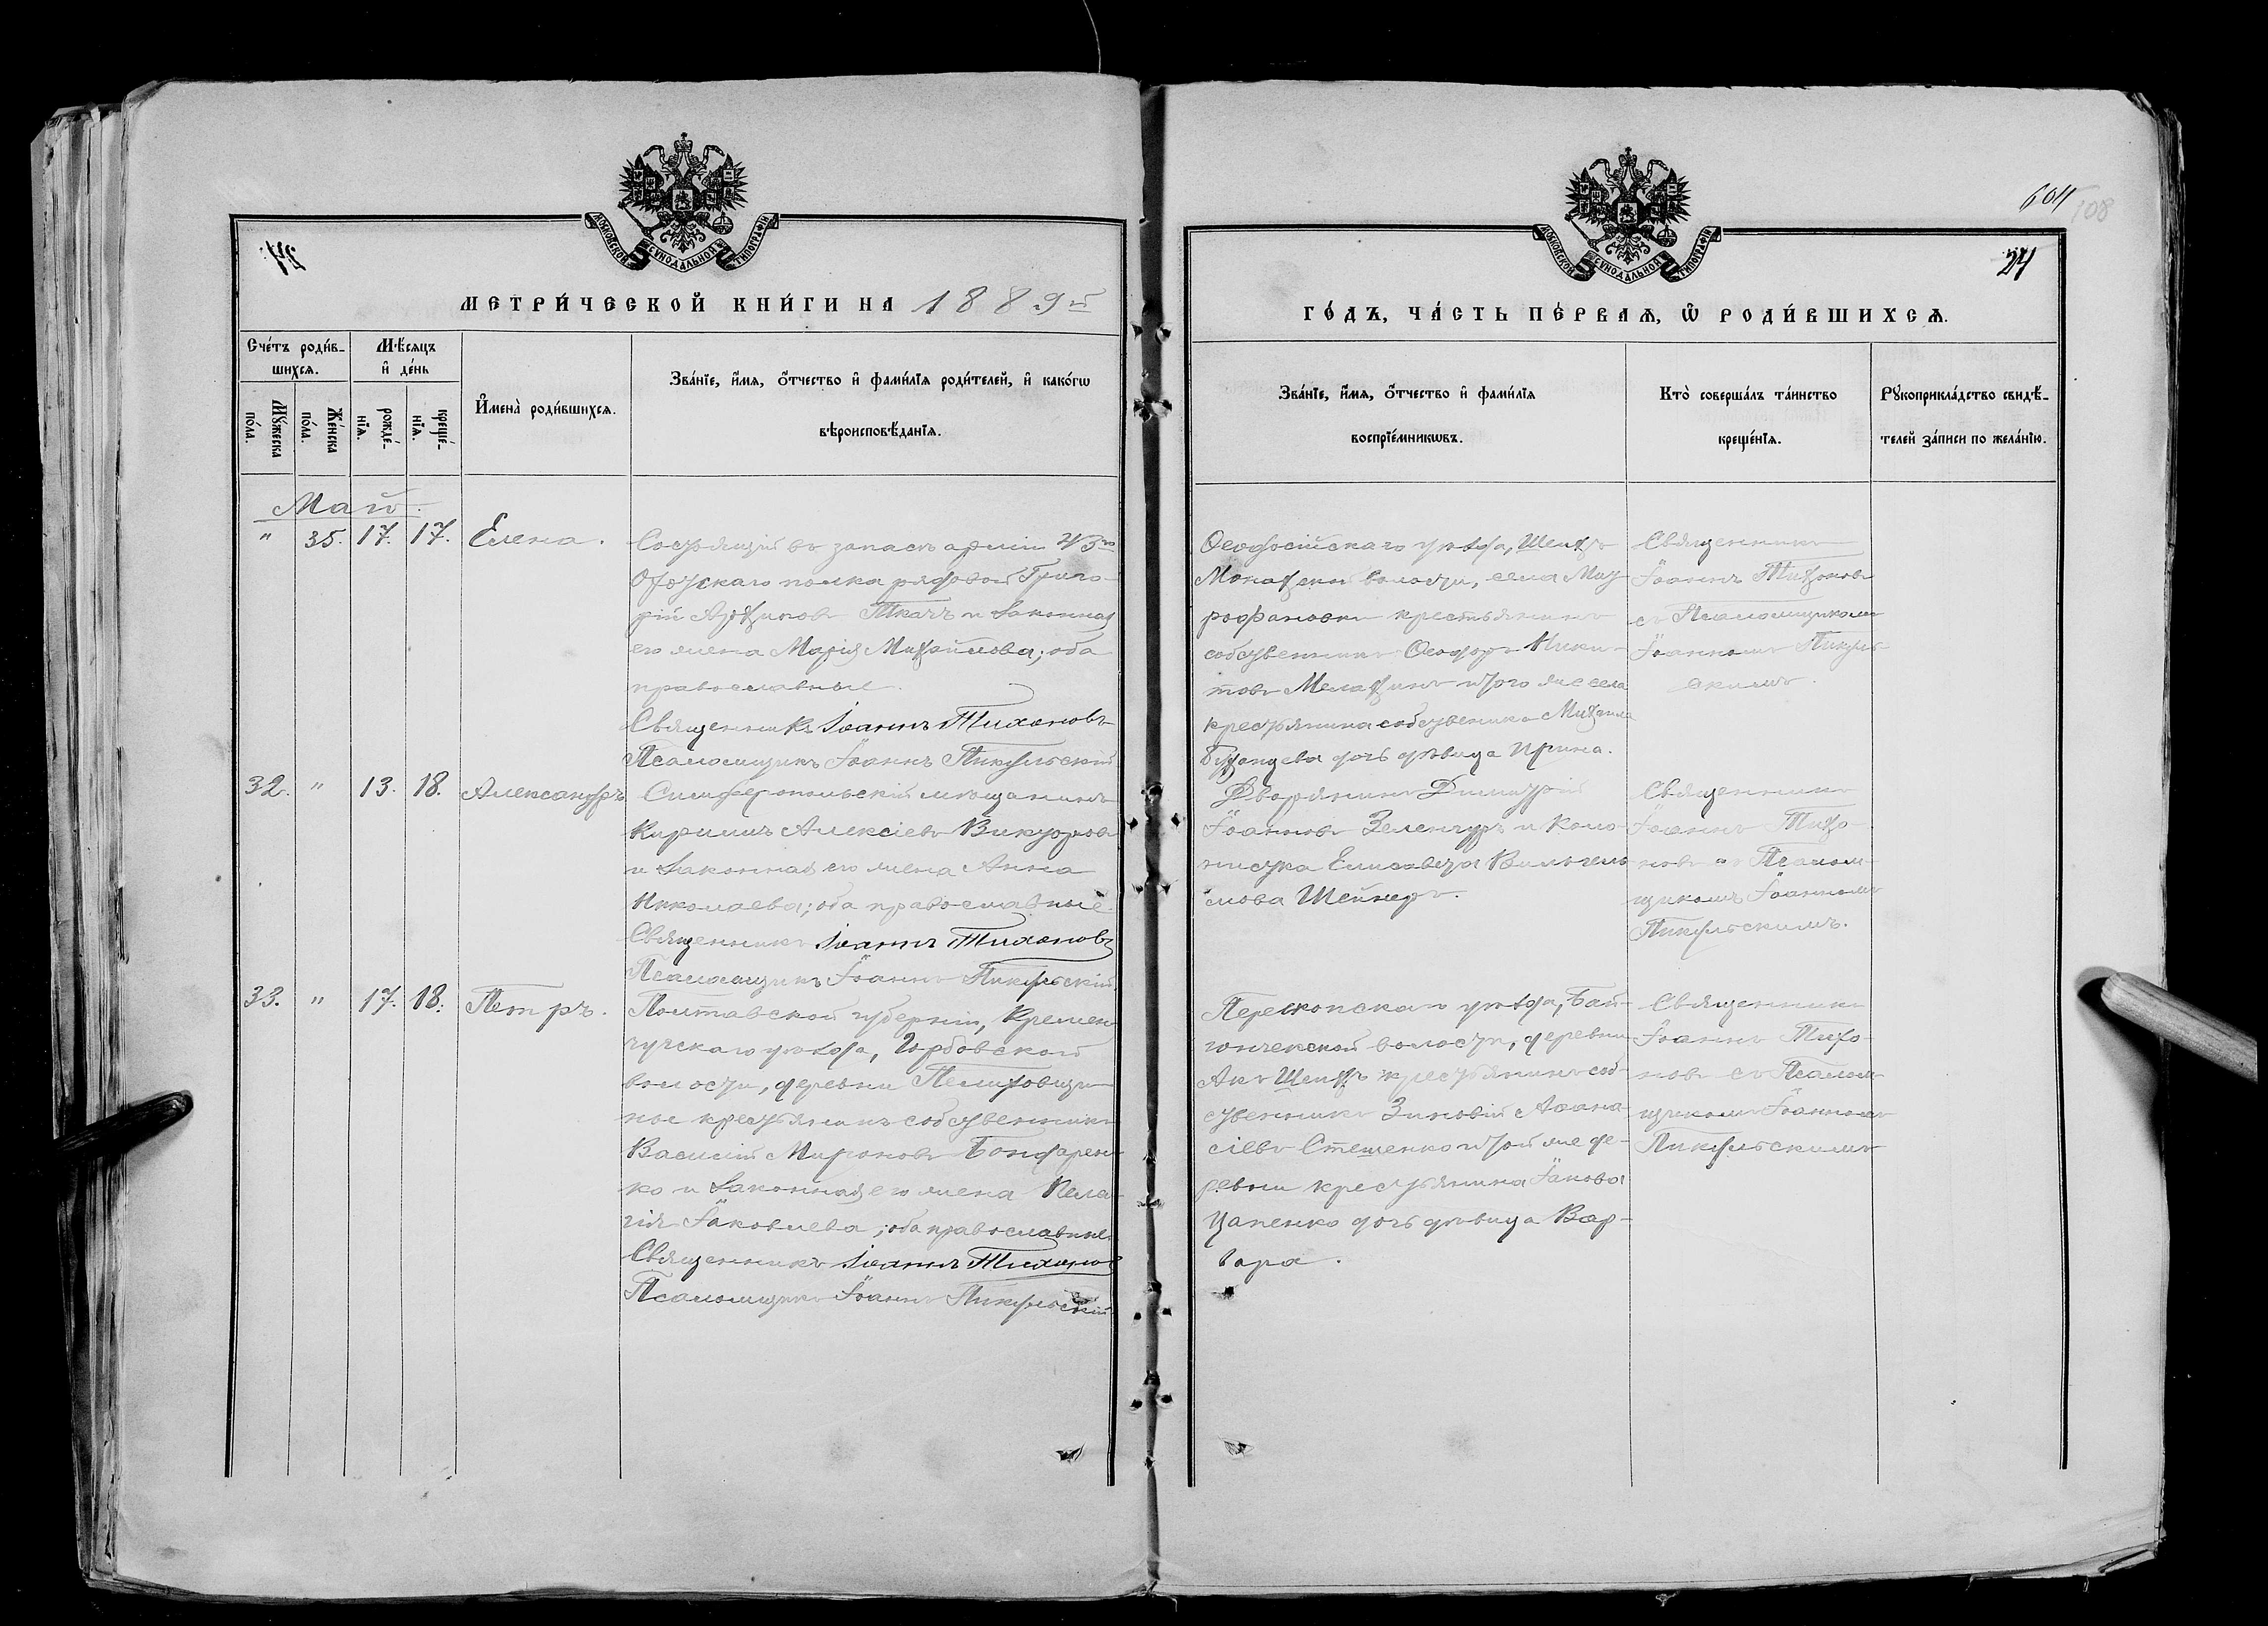 МОСКОВСКОЙ СѴНОДАЛЬНОЙ ТИПОГРАФІИ
24.
МЕТРИ́ЧЕСКОЙ КНИ́ГИ НА 1889й
Сче́тъ роди́в-
шихся.
Мѣ́сяцъ
и҆ де́нь
Мꙋ́жеска
по́ла.
Же́нска
по́ла.
рожде́-
нїя.
креще́-
нїя.
И҆мена̀ роди́вшихся.
Зва́нїе, и҆́мя, ѻ҆́тчество и҆ фами́лїя роди́телей, и҆ како́гѡ
вѣроисповѣ́данїя.
Май.
" 35. 17. 17. Елена.
Состоящій въ запасѣ арміи 43го
Охотскаго полка рядовой Григо-
рій Архиповъ Ткачъ и законная
его жена Марія Михайлова; оба
православные.
Священникъ Іоаннъ Тихоновъ
Псаломщикъ Іоаннъ Пикульскій
32. " 13. 18. Александръ
Симферопольскій мѣщанинъ
Кириллъ Алексіевъ Викторовъ
и законная его жена Анна
Николаева; оба православные.
Священникъ Іоаннъ Тихоновъ
Псаломщикъ Іоаннъ Пикульскій.
33. " 17. 18. Петръ.
Полтавской губерніи, Кремен-
чугскаго уѣзда,
волости, деревни
крестьянинъ собственникъ
Василій Мироновъ Бондарен-
ко и законная его жена Пела-
гія Іаковлева; оба православные.
Священникъ Іоаннъ Тихоновъ
Псаломщикъ Іоаннъ Пикульскій
МОСКОВСКОЙ СѴНОДАЛЬНОЙ ТИПОГРАФІИ
108
24
ГО́ДЪ, ЧА́СТЬ ПЕ́РВАЯ, Ѡ҆ РОДИ́ВШИХСЯ.
Зва́нїе, и҆́мя, ѻ҆́тчество и҆ фами́лїя
воспрїе́мникѡвъ.
Кто̀ соверша́лъ та́инство
креще́нїя.
Рꙋкоприкла́дство свидѣ́-
телей за́писи по жела́нїю.
Ѳеодосійскаго уѣзда, Шейхъ
Монахской волости, села Мит-
рофановки крестьянинъ
собственникъ Ѳеодоръ Ники-
товъ и того же села
крестьянина собственика Михаила
дочь дѣвица Ирина.
Священникъ
Іоаннъ Тихоновъ
съ Псаломщикомъ
Іоанномъ Пикуль-
скимъ.
Дворянинъ Димитрій
Іоанновъ и Коло-
нистка Елисавета Вильгель-
мова Шейнеръ.
Священникъ
Іоаннъ Тихо-
новъ съ Псалом-
щикомъ Іоанномъ
Пикульскимъ.
Перекопскаго уѣзда, Бай-
гончекской волости, деревни
Акъ Шейхъ крестьянинъ соб-
ственникъ Зиновій Аѳана-
сіевъ Стешенко и той же де-
ревни крестьянина Іакова
Цапенко дочь дѣвица Вар-
вара.
Священникъ
Іоаннъ Тихо-
новъ съ Псалом-
щикомъ Іоанномъ
Пикульскимъ